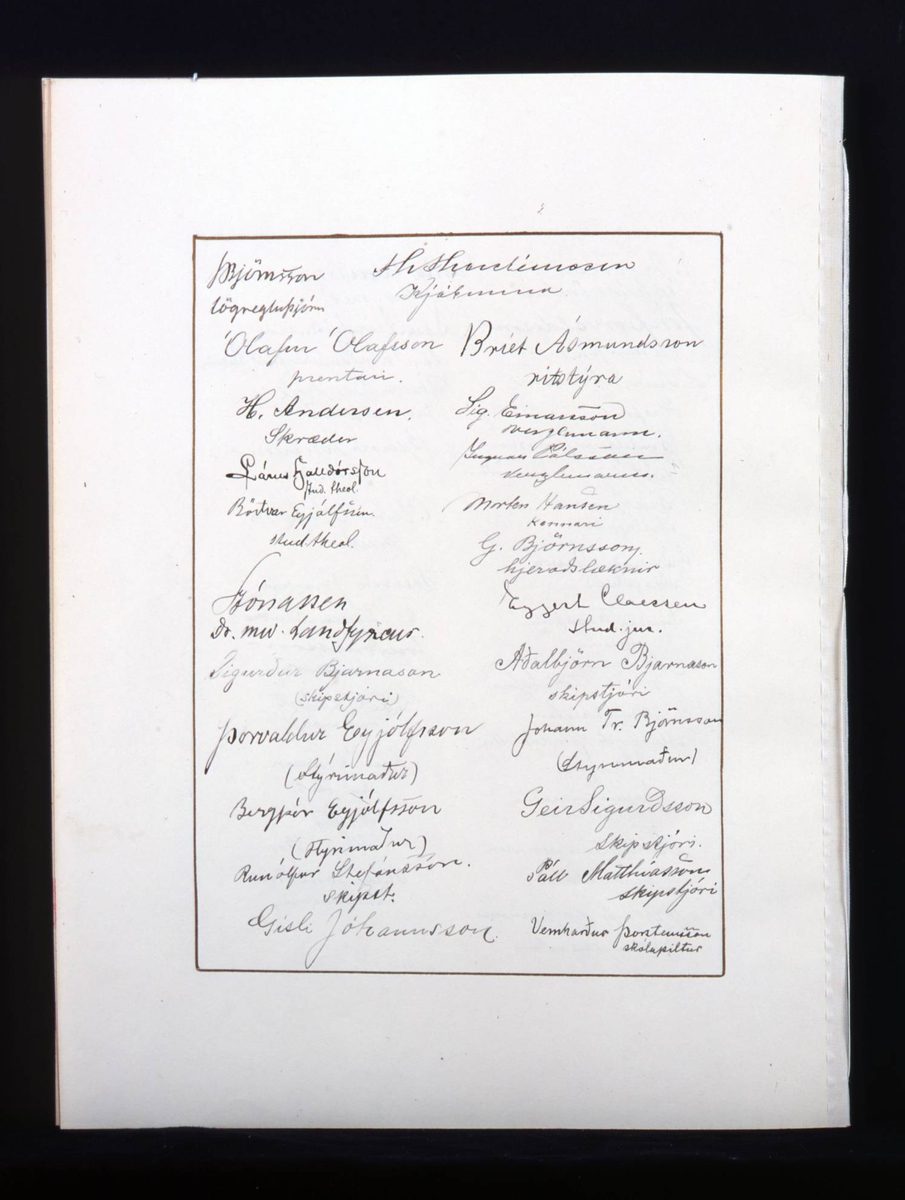 ÞBjörnsson
lögregluþjónn
Ólafur Ólafsson
prentari.
H. Andersen.
Skræder
Lárus Halldórsson
stud. theol.
Böðvar Eyjólfsson
stud theol.
JJónassen
Dr. med. Landfysicus.
Sigurður Bjarnason
(skipstjóri)
Þorvaldur Eyjólfsson
(Stýrimaður)
Bergþór Eyjólfsson
(stýrimaður)
Runólfur Stefánsson.
skipst.
Gísli Jóhannsson.
Th Thorsteinsson
Kjötmunna
Bríet Ásmundsson
ritstýra
Sig. Einarsson
verzlunarm.
Ingvar Pálsson
verzlunarm.
Morten Hansen
kennari
G. Björnsson,
hjeraðslæknir
Eggert Claessen
stud. jur.
Aðalbjörn Bjarnason
skipstjóri
Jóhann Tr. Björnsson
(Stýrimaður)
Geir Sigurðsson
Skipstjóri.
Páll Matthíasson
skipstjóri
Vernharður Þorsteinsson
skólapiltur